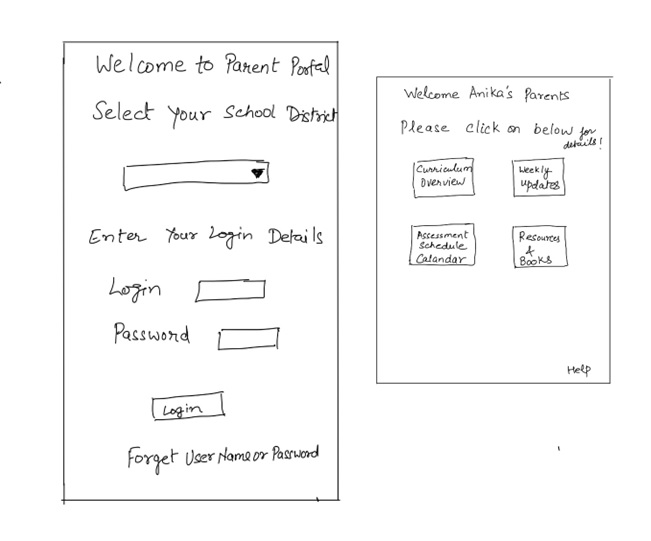 Welcome to Parent Portal
Select Your School District
Enter Your Login Details
Login
Password
Login
Forget User Name or Password
Welcome Anika's Parents
Please click on below for
details!
Curriculum
Overview
Weekly
updates
Assessment
Schedule
Calandar
Resources
&
Books
Help